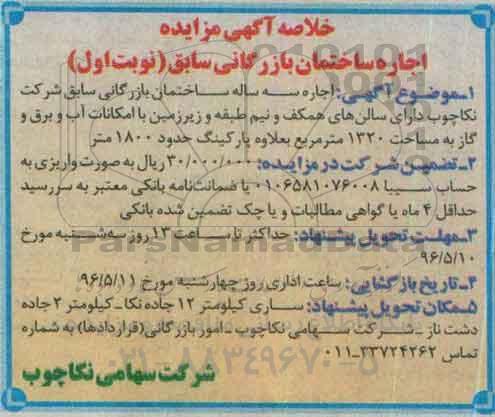 خلاصه آگهی مزایده
اجاره ساختمان بازرگانی سابق (نوبت اول)
۱ـ موضوع آگهی: اجاره سه ساله ساختمان بازرگانی سابق شرکت
نکاچوب دارای سالن‌های همکف و نیم طبقه و زیرزمین با امکانات آب و برق و
گاز به مساحت ۱۳۲۰ مترمربع بعلاوه پارکینگ حدود ۱۸۰۰ متر
۲ـ تضمین شرکت در مزایده: ۳۰/۰۰۰/۰۰۰ ریال به صورت واریزی به
حساب سیبا ۰۱۰۶۵۸۱۰۷۶۰۰۸ یا ضمانت‌نامه بانکی معتبر به سررسید
حداقل ۴ ماه یا گواهی مطالبات و یا چک تضمین شده بانکی
۳ـ مهلت تحویل پیشنهاد: حداکثر تا ساعت ۱۳ روز سه‌شنبه مورخ
۹۶/۵/۱۰
۴ـ تاریخ بازگشایی: ساعت اداری روز چهارشنبه مورخ (۹۶/۵/۱۱
۵ـ مکان تحویل پیشنهاد: ساری کیلومتر ۱۲ جاده نکا ـ کیلومتر ۲ جاده
دشت ناز ـ شرکت سهامی نکاچوب ـ امور بازرگانی (قراردادها) به شماره
تماس ۳۳۷۲۴۲۶۲ـ۰۱۱
شرکت سهامی نکاچوب
ParsNamadData
۰۲۱-۸۸۳۴۹۶۷۰-۵